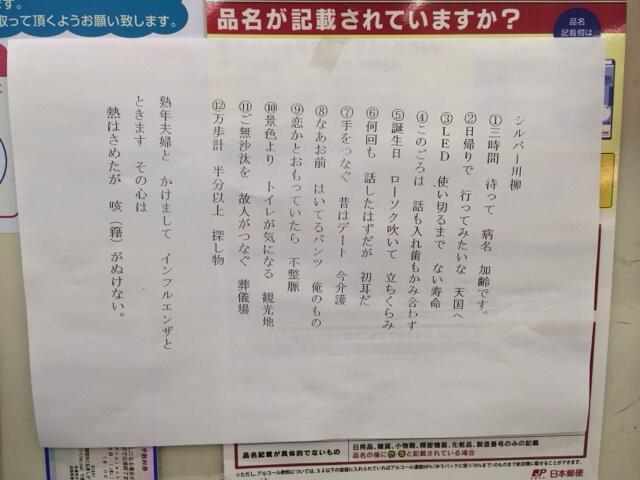 す。
取って頂くようお願い致します。
品名が記載されていますか？
品名
記載欄は
シルバー川柳
①三時間 待って 病名 加齢です。
②日帰りで 行ってみたいな 天国へ
③LED 使い切るまで ない寿命
④このごろは 話も入れ歯もかみ合わず
⑤誕生日 ローソク吹いて 立ちくらみ
⑥何回も 話したはずだが 初耳だ
⑦手をつなぐ 昔はデート 今介護
⑧なあお前 はいてるパンツ 俺のもの
⑨恋かとおもっていたら 不整脈
⑩景色より トイレが気になる 観光地
⑪ご無沙汰を 故人がつなぐ 葬儀場
⑫万歩計 半分以上 探し物
熟年夫婦と かけまして インフルエンザと
ときます その心は
熱はさめたが 咳（籍）がぬけない。
品名記載が具体的でないもの
日用品、雑貨、小物類、精密機器、化粧品、製造番号のみの記載
品名の後に と記載されている場合
日本郵便